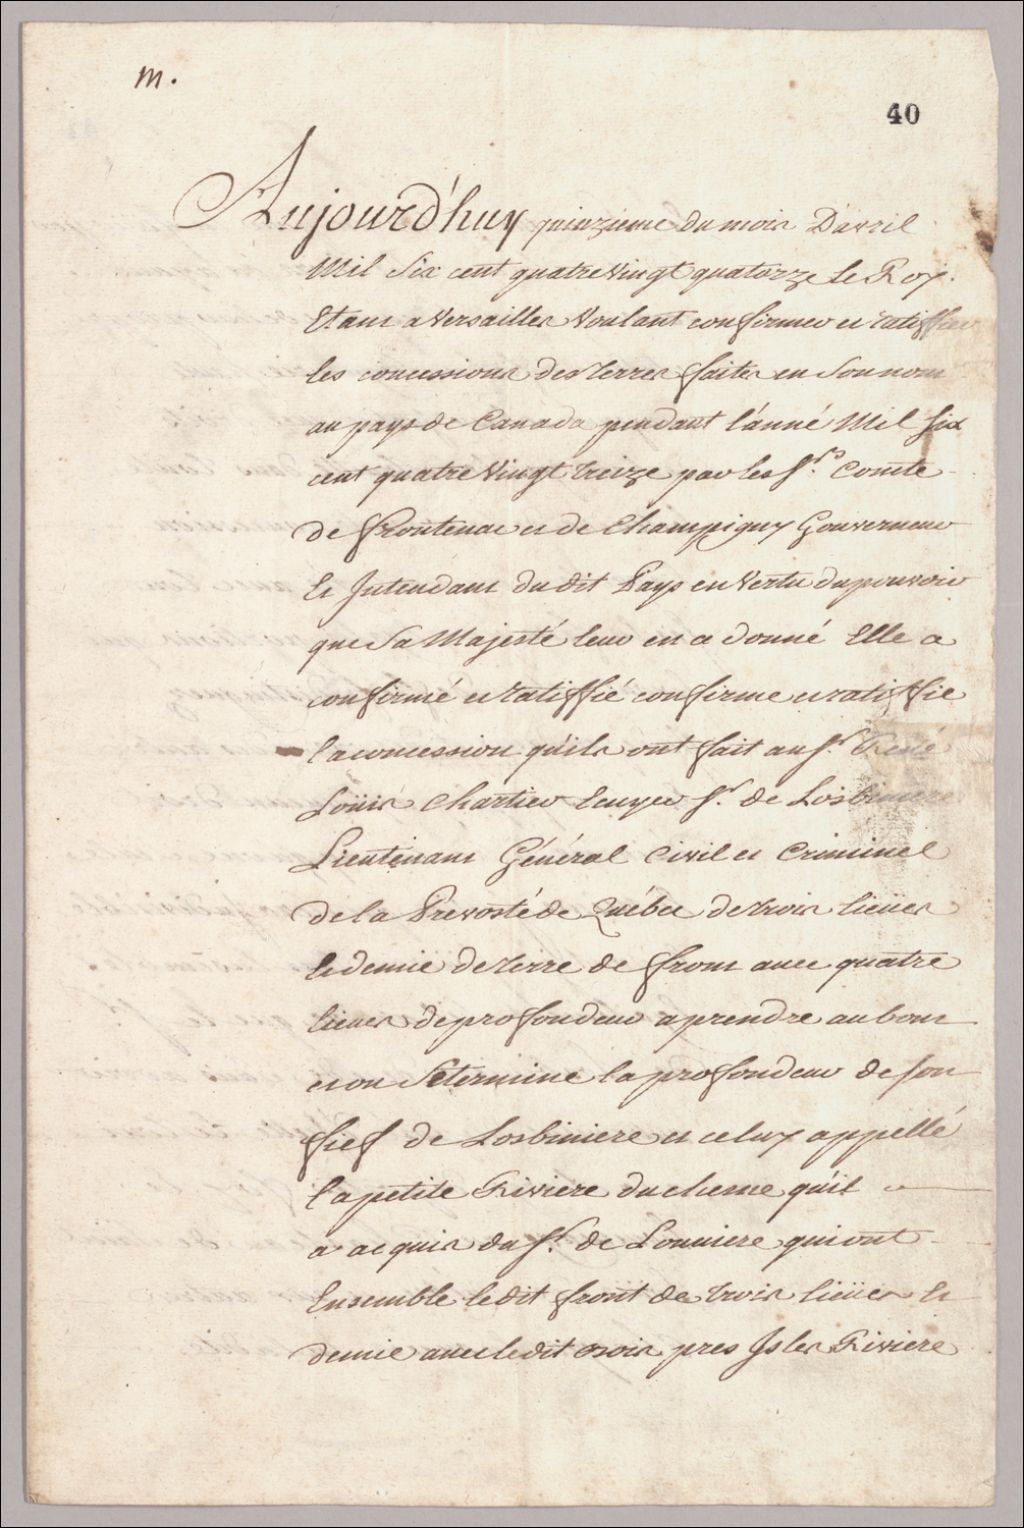 m.
40
Aujourd'huy quinzieme du mois D'avril
Mil Six cent quatre Vingt quatorze le Roy
Etant a Versailles Voulant confirmer et ratiffier
les concessions des terres faites en Son nom
au pays de Canada pendant l'anné Mil Six
cent quatre Vingt treize par les Srs. Comte
de Frontenac et de Champigny Gouverneur
Et Intendant du dit Pays en Vertu du pouvoir
que Sa Majesté leur en a donné Elle a
confirmé et ratiffié confirme et ratiffie
la concession qu'ils ont fait au Sr. René
Loüis Chartier Ecuyer Sr. de Losbiniere
Lieutenant Général Civil et Criminel
de la Prevosté de Québec de trois lieües
Et demie de terre de front avec quatre
lieues de profondeur a prendre au bout
et ou Se termine la profondeur de son
fief de Losbiniere et celuy appellé
la petite Riviere du chesne qu'il
a acquis du Sr. de Louviere qui ont
Ensemble le dit front de trois lieües Et
demie avec le dit bois pres Isles Riviere